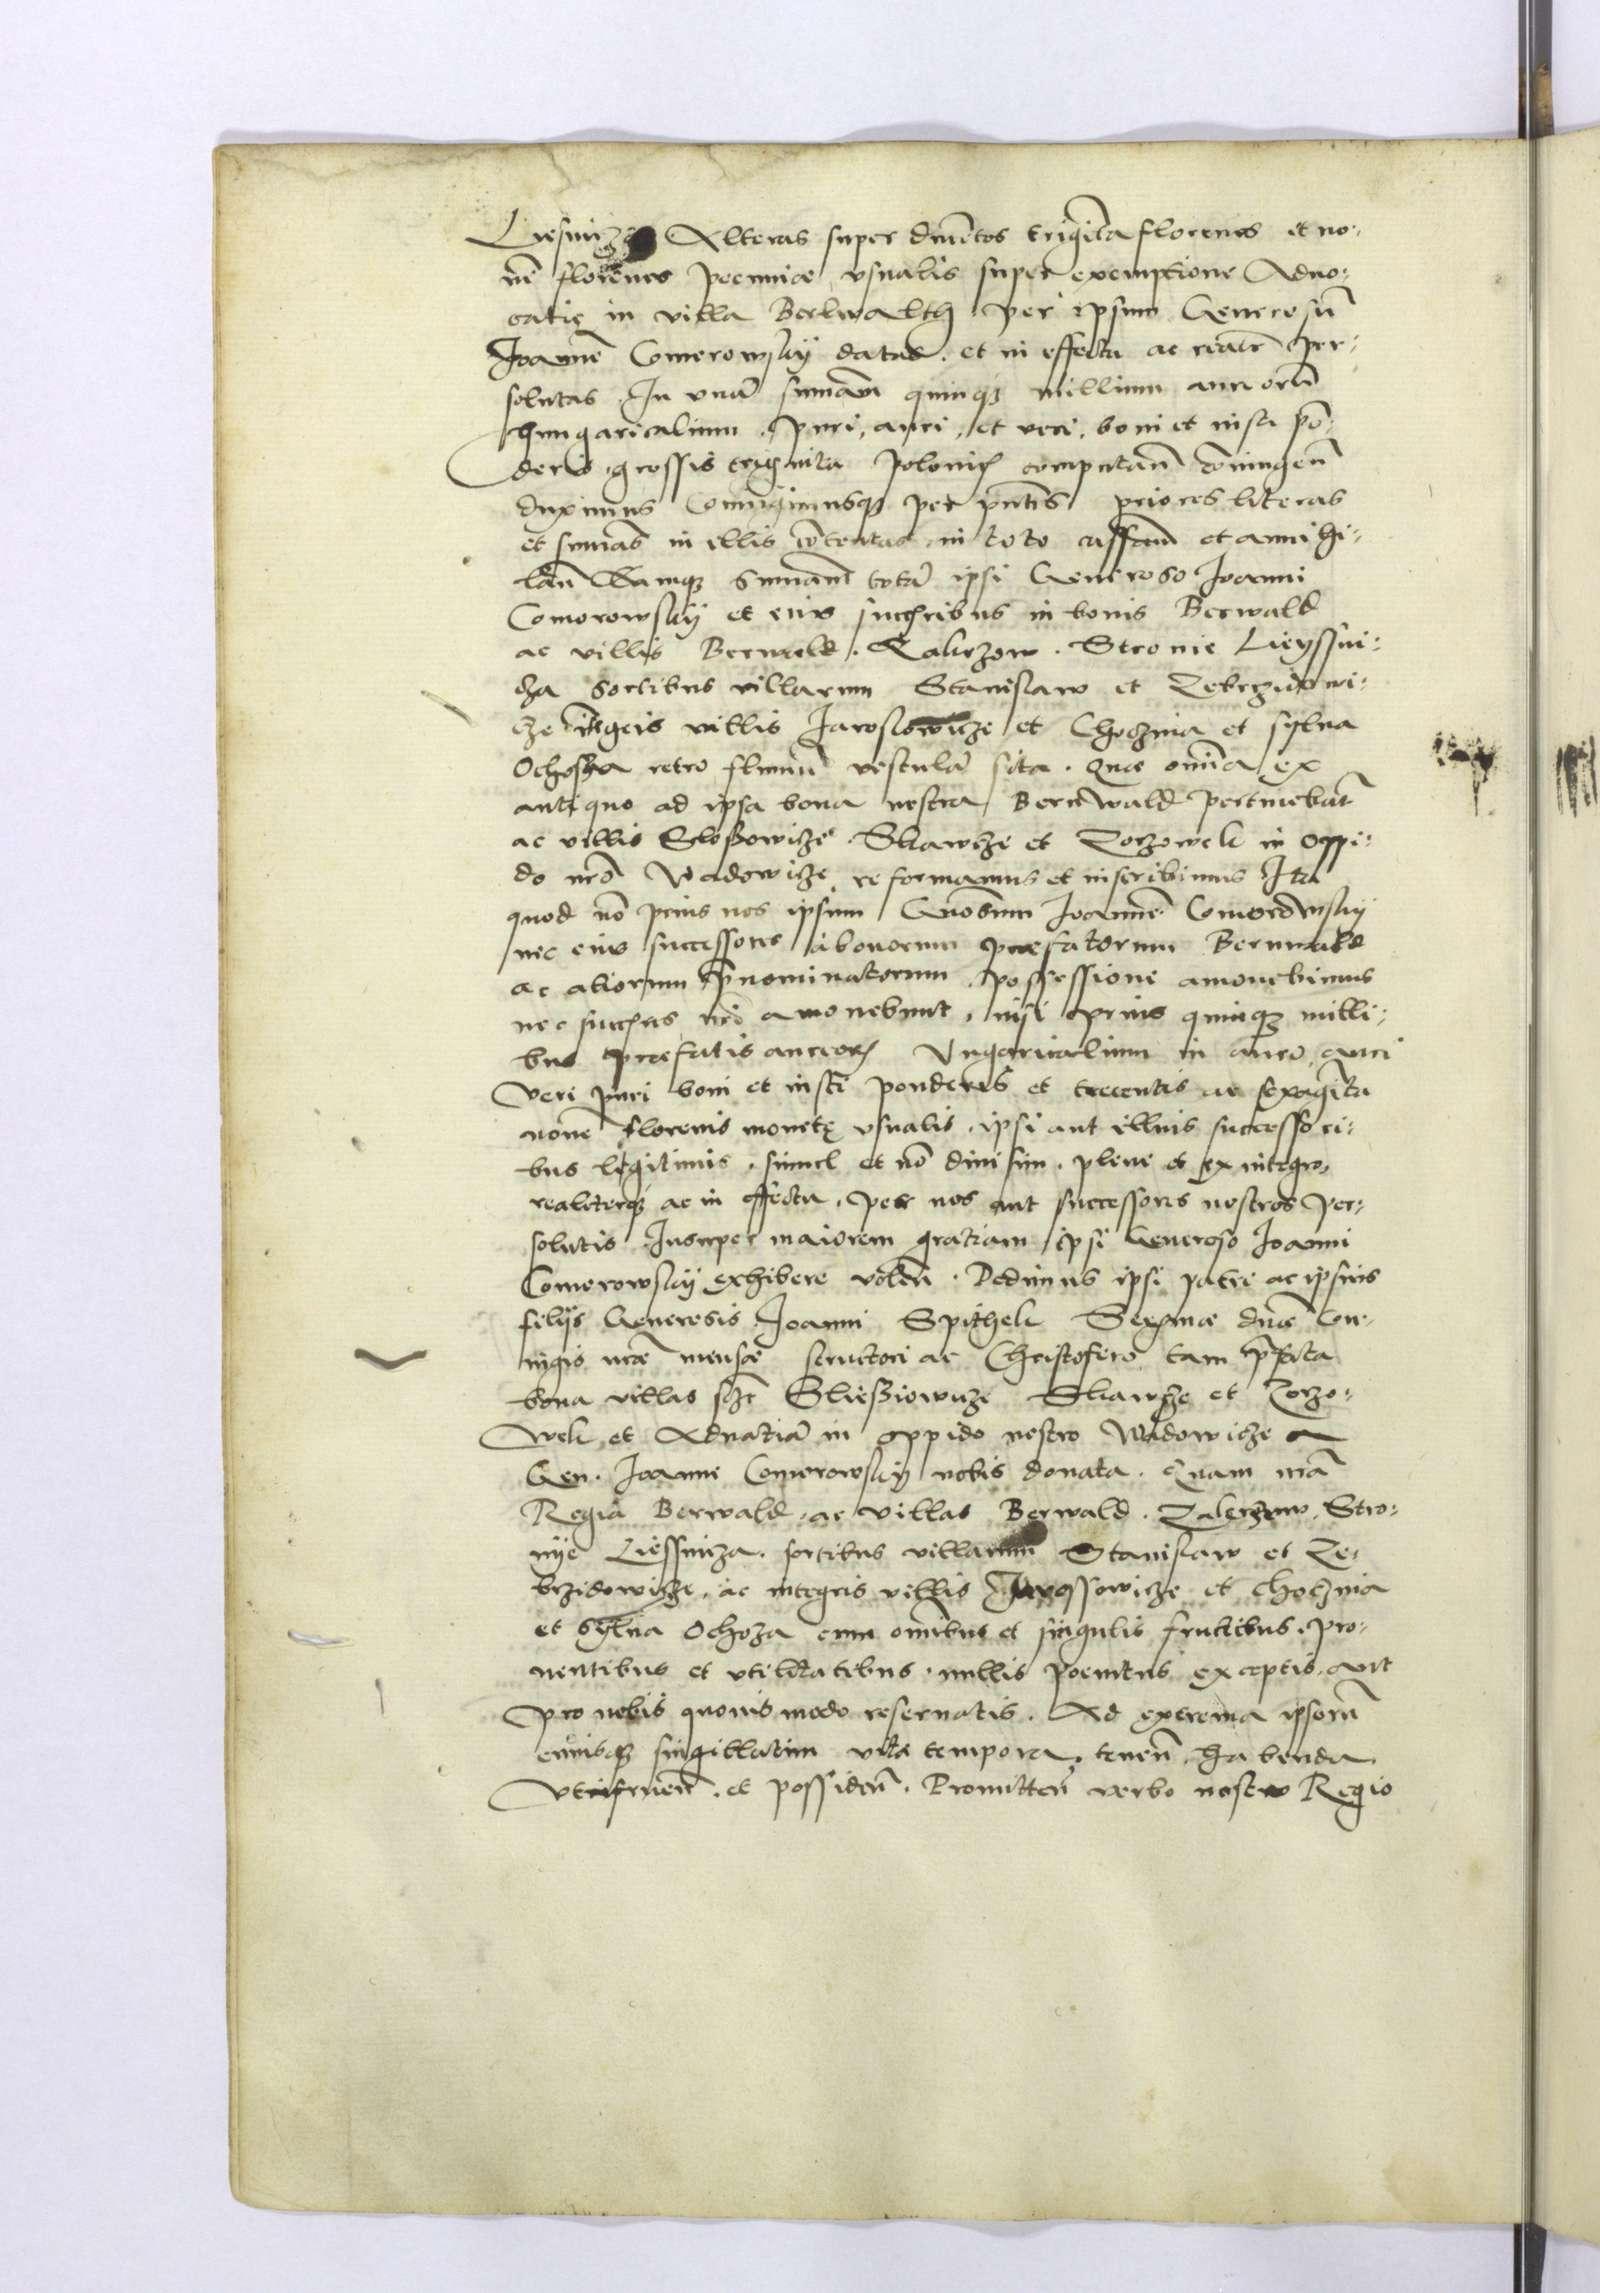 Liesnicza Alteras super ducẽtos trigĩta florenos et no-
uẽ florenos pecuniæ vsualis super exemptione Aduo-
catię in villa Berlwalth per ipsum Generosũ
Joannẽ Comorowskij datas. et in effectu ac realr̃ per-
solutas. In vnã sum̃am quinq3 millium aureorũ
hungaricalium puri, auri, et veri, boni et iusti põ-
deris, grossis triginta Polonis computañ cõiungeñ
duximus Coniungimusq3 per pñtes priores literas
et sum̃as in illis cõtentas in toto cassañ et annihi-
lañ Eamq3 Sum̃am totã ipsi Generoso Joanni
Comorowskij et eius succ̃ribus in bonis Berwald
ac villis Berwald. Zakrzow. Stronie Lieyssni-
cza Sortibus villarum Stanislaw et Zebrzidowi-
cze ĩtegris villis Jaroslowicze et Chocznia et sylua
Ochosza retro fluuiũ vistulã sita. Quæ om̃ia ex
antiquo ad ipsa bona nostra Bernwald pertinebãt
ac villis Sloszowicze Skawcze et Zorzowek in oppi-
do nr̃o Wadowicze reformamus et inscribimus Ita
quod nõ prius nos ipsum Gñosum Joannẽ Comorowskij
nec eius successores à bonorum præfatorum Bernwald
ac aliorum p̃nominatorum possessione amouebimus
nec succ̃res nr̃i amouebunt, nisi prius quinq3 milli-
bus præfatis aureorũ Vngaricalium in auro, auri
veri puri boni et iusti ponderis et trecentis ac sexagĩta
nouẽ florenis monetę vsualis. ipsi aut illius successori-
bus legitimis. simul et nõ diuisim. plene et ex integro,
realiterq3 ac in effectu, per nos aut successores nostros per-
solutis Insuper maiorem gratiam ipsi Generoso Joanni
Comorowskij exhibere voleñ. Dedimus ipsi patri ac ipsius
filijs Generosis Joanni Spithek Sexmæ dnæ Con-
iugis nr̃æ mensæ structori ac Christofero tam p̃fata
bona villas sczt̃ Sliesziowicze Skawcze et Zorzo-
wek et Aduatiã in oppido nostro Wadowicze a
Gen. Joanne Comorowskij nobis donata. Quam nr̃a
Regia Berwald. ac villas Berwald. Zakrzow. Stro-
nije Liessnicza. sortibus villarum Stanislaw et Ze-
brzidowicze. ac integris villis Jarossowicze et choznia
et Sylua Ochoza cum om̃ibus et singulis fructibus, pro-
uentibus et vtilitatibus. nullis poenitus exceptis, aut
pro nobis quouis modo reseruatis. Ad extrema ipsorũ
cuiuibq3 singillatim vitæ tempora. teneñ habenda
vtifrueñ. et possideñ. Promitteñ verbo nostro Regio